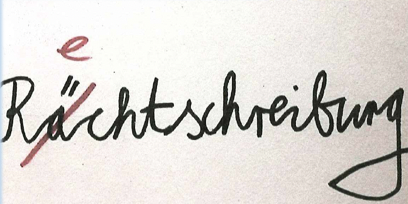 e
Rächtschreibung